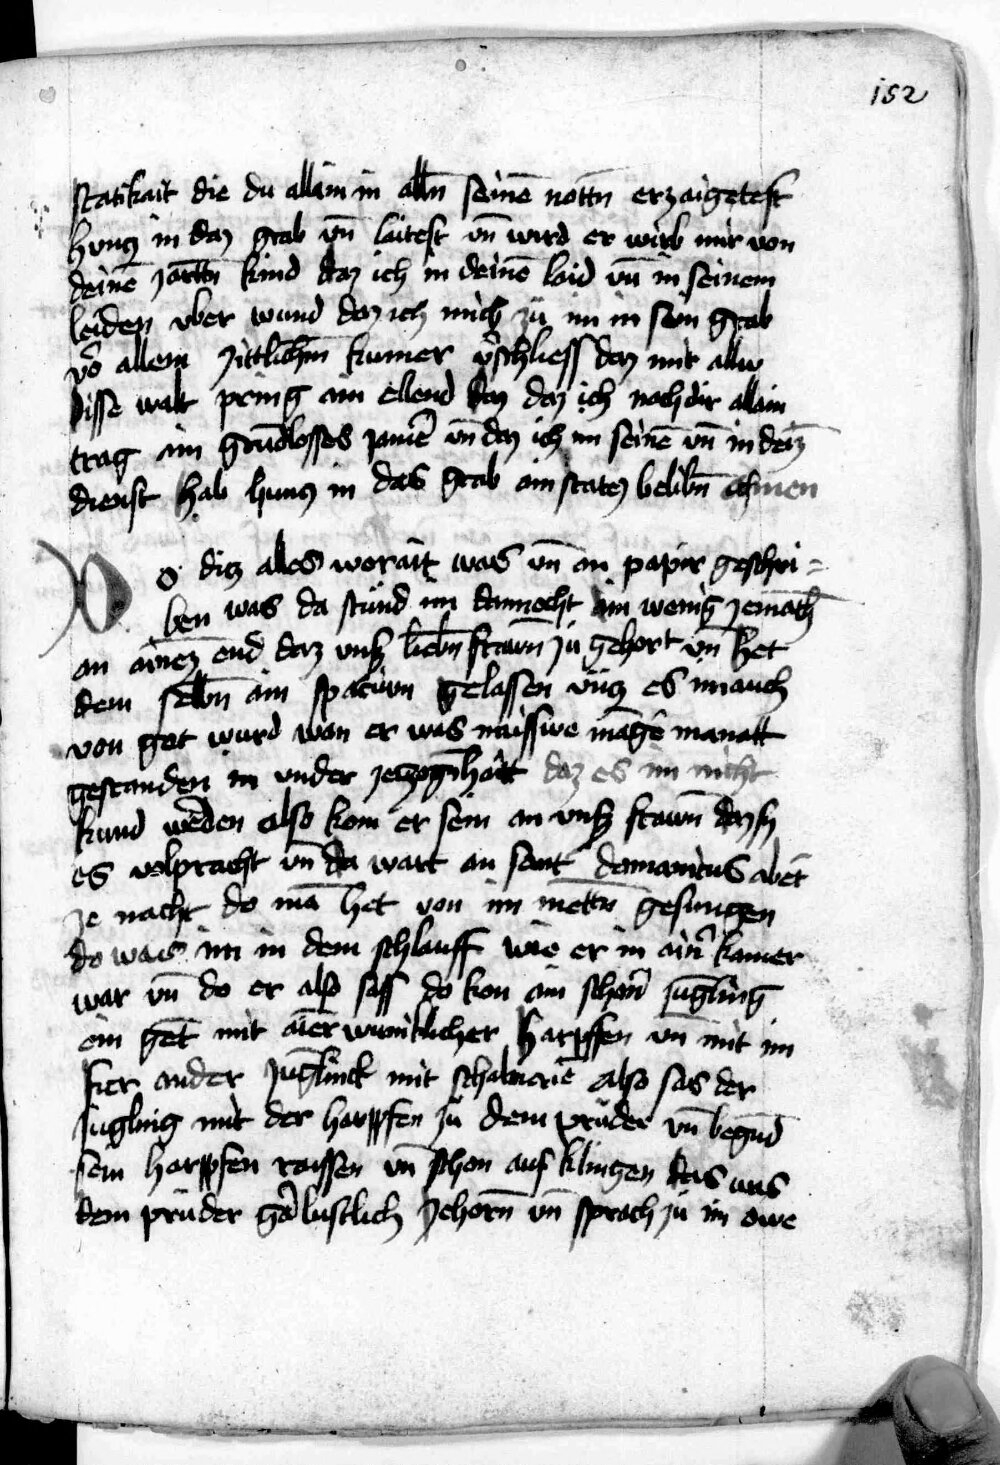 152
statikait die du allain in alln̄ seinē nottn̄ erzaigetest
huntz in daz grab vn̄ laitest vn̄ wird er wirb mir von
deinē zarttn̄ kind daz ich in deinē laid vn̄ in seinem
leiden vber wund daz ich mich zů im in sein grab
vō allem zittlichm̄ kumer v̄schliess daz mir allu
disse walt pring ain ellend daz daz ich noch dir allain
trag ain grūdlosses jamer vn̄ daz ich im seinē vn̄ in deīz
dienst hab huntz in das grab ain statez belibn̄ Amen
Do ditz alles worait was vn̄ an papir geschri=
ben was da stund im dannocht ain wenig ze math
an ainez end daz vnsz liebn̄ frawn̄ zů gehort vn̄ het
dem selbn̄ ain spacium gelassen vntz es im auch
von got wurd wan er was musswe mangē manatt
gestanden im vnder zetzognhait daz es im nicht
kund wēden also kom er sein an vnsz frawn̄ daz sy
es volpracht vn̄ da wart an sant domanicus abēt
ze nacht do mā het von im mettn̄ gesungen
do was im in dem schlauff wie er in ainr kamer
war vn̄ do er also sass do kom ain schonr jūgling
ein gēt mit ainer wuniklicher harpffen vn̄ mit im
fier ander jūglinck mit schalmeiē also sas der
jugling mit der harpffen zů dem průder vn̄ begūd
sein harpffen raissen vn̄ schon auf klingen das was
dem průder gar lustlich ze horn̄ vn̄ sprach zů im owe